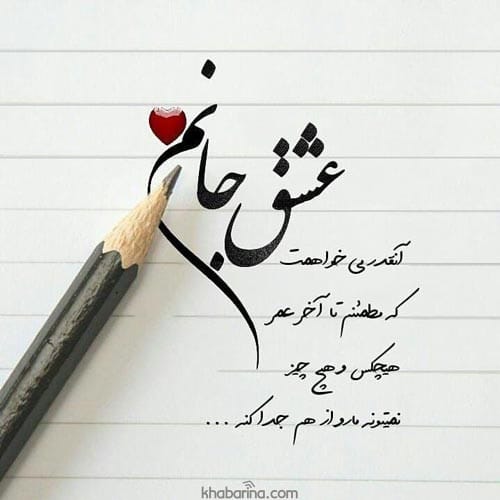 عشق جانم
آنقدر می خواهمت
که مطمئنم تا آخر عمر
هیچکس و هیچ چیز
نمیتونه مارو از هم جدا کنه ...
khabarina.com